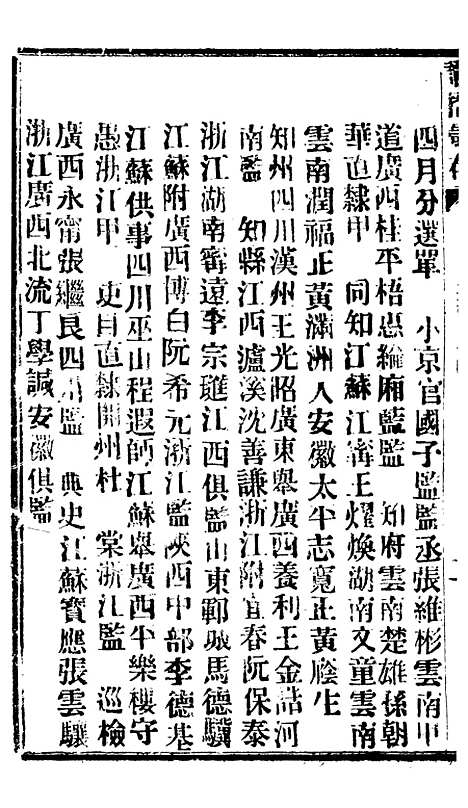 四月分選單　小京官國子監監丞張維彬雲南甲
道廣西桂平梧惠綸廂藍監　知府雲南楚雄孫朝
華直隸甲　同知江蘇江甯王燿煥湖南文童雲南
雲南潤福正黃滿洲人安徽太平志寬正黃廕生
知州四川漢州王光昭廣東舉廣西養利王金誥河
南監　知縣江西瀘溪沈善謙浙江附宜春阮保泰
浙江湖南甯遠李宗蓮江西俱監山東鄆城馬德驥
江蘇附廣西博白阮希元浙江監陝西中部李德基
江蘇供事四川巫山程遐師江蘇舉廣西平樂樓守
愚浙江甲　吏目直隸開州杜　棠浙江監　巡檢
廣西永甯張繼良四川監　典史江蘇寶應張雲驤
浙江廣西北流丁學誠安徽俱監